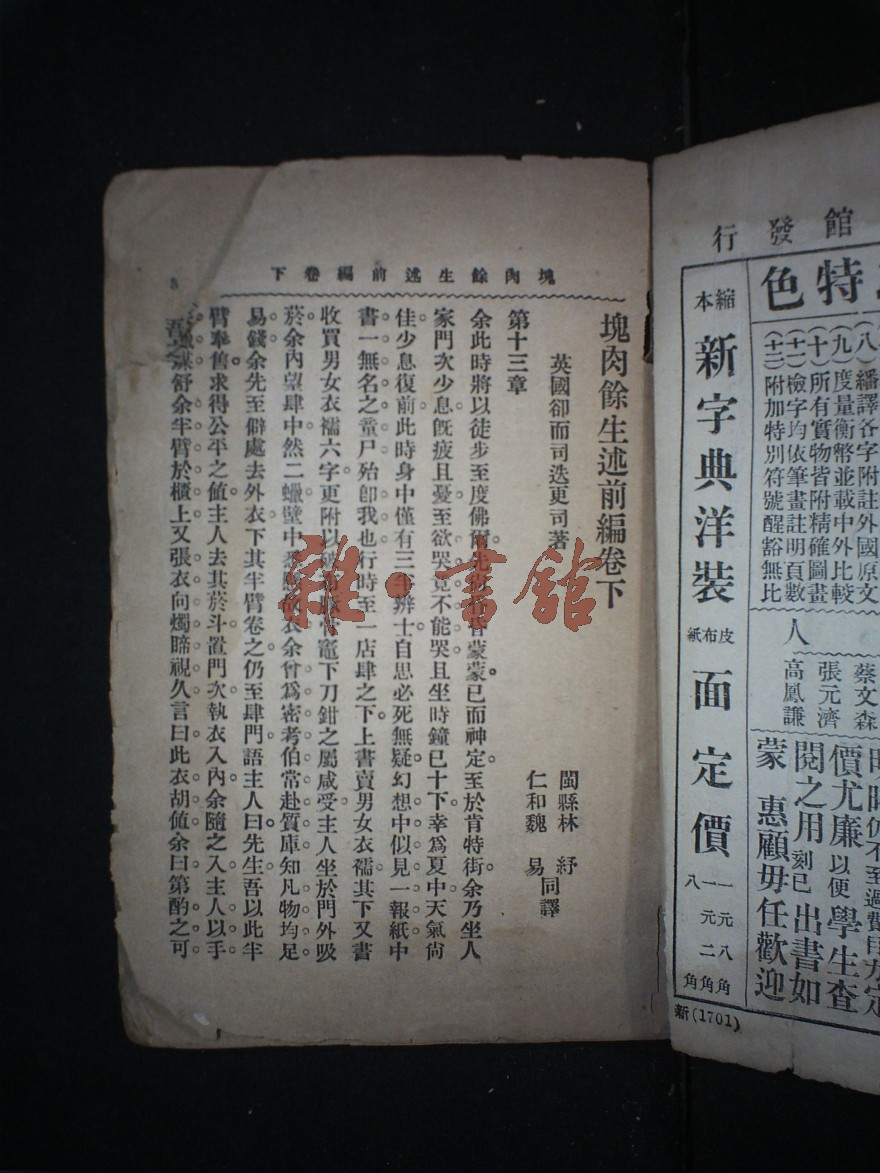 館發行
特色
縮本
新字典洋裝
皮布紙
面定價
一元八角
一元二角
八角
(八)繙譯各字附註外國原文
(九)度量衡幣並載中外比較
(十)所有實物皆附精確圖畫
(十一)檢字均依筆畫註明頁數
(十二)附加特別符號醒豁無比
人
蔡文森
張元濟
高鳳謙
價尤廉以便學生查
閱之用刻已出書如
蒙惠顧毋任歡迎
新(1701)
塊肉餘生述前編卷下
塊肉餘生述前編卷下
英國卻而司迭更司著
閩縣林紓
仁和魏易
同譯
第十三章
余此時將以徒步至度佛爾蒙蒙已而神定至於肯特街余乃坐人
家門次少息旣疲且憂至欲哭竟不能哭且坐時鐘已十下幸爲夏中天氣尙
佳少息復前此時身中僅有三半辨士自思必死無疑幻想中似見一報紙中
書一無名之童尸殆卽我也行時至一店肆之下上書賣男女衣襦其下又書
收買男女衣襦六字更附以竈下刀鉗之屬咸受主人坐於門外吸
菸余內望肆中然二蠟壁中悉衣余曾爲密考伯常赴質庫知凡物均足
易錢余先至僻處去外衣下其半臂卷之仍至肆門語主人曰先生吾以此半
臂奉售求得公平之値主人去其菸斗置門次執衣入內余隨之入主人以手
舒余半臂於櫃上又張衣向燭睇視久言曰此衣胡値余曰第酌之可
雜·書館